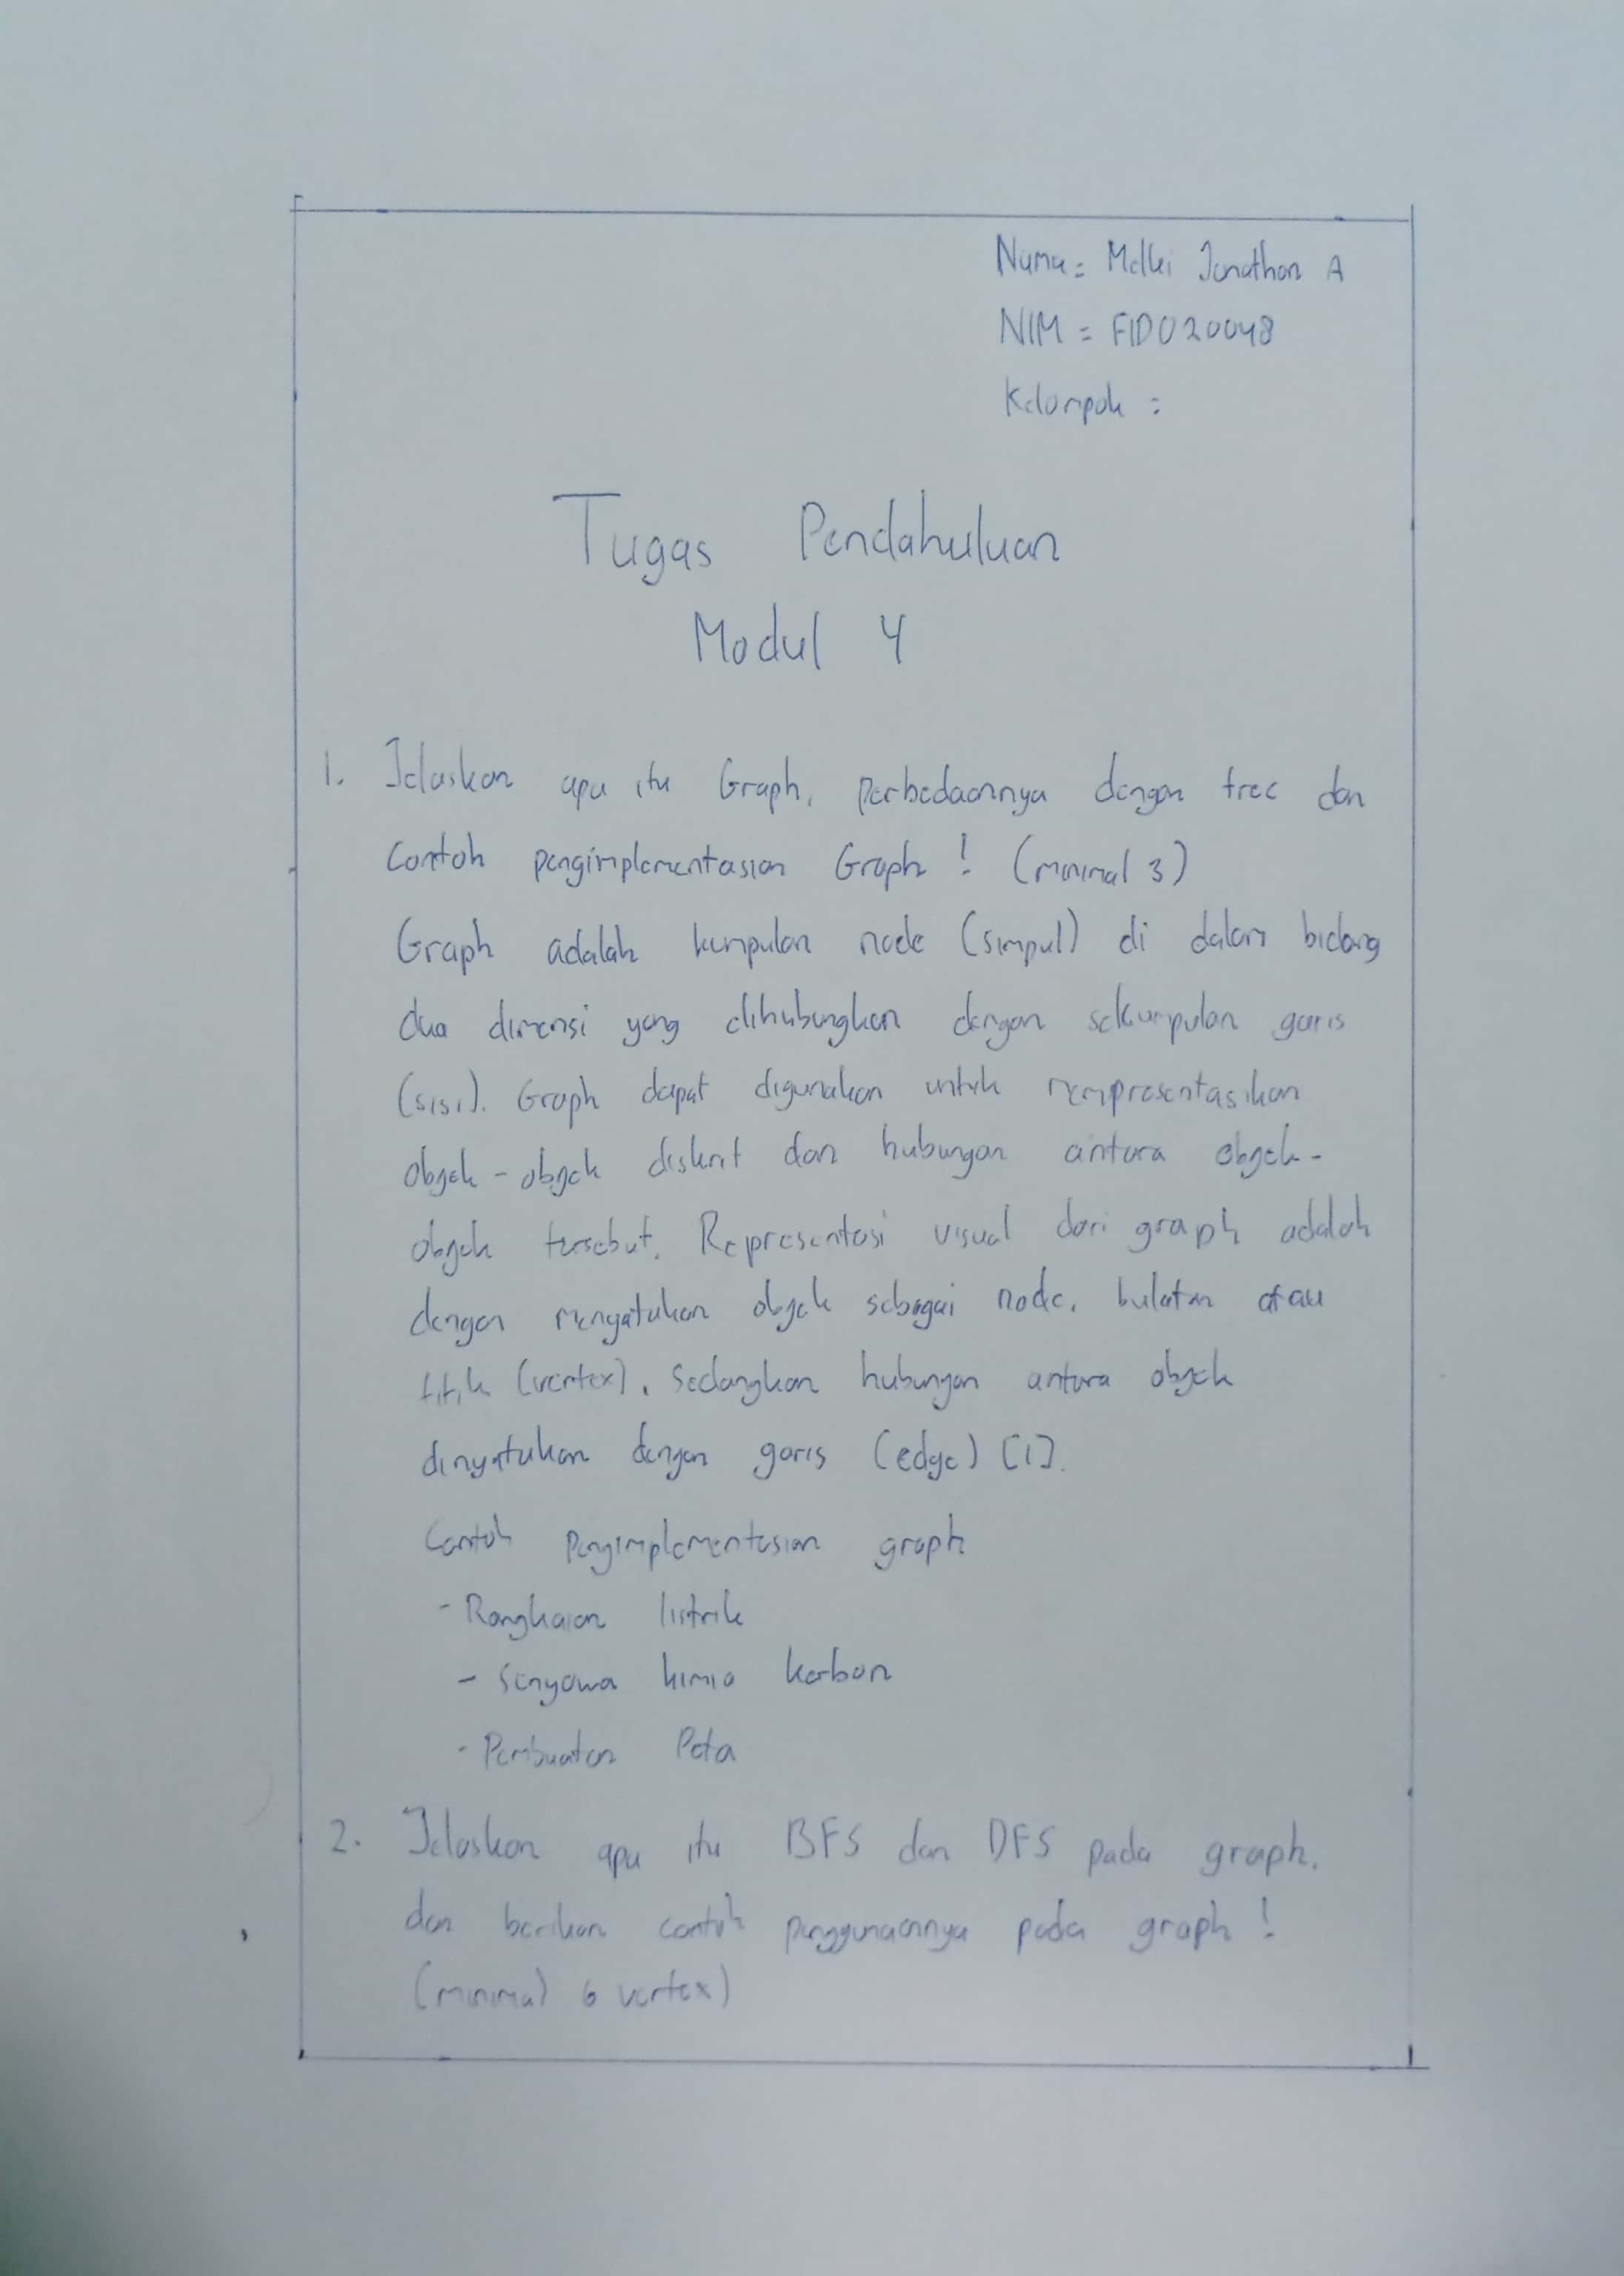 Nama = Melki Jonathan A
NIM = F1D020048
Kelompok :
Tugas Pendahuluan
Modul 4
1. Jelaskan apa itu Graph, perbedaannya dengan tree dan
contoh pengimplementasian Graph ! (minimal 3)
Graph adalah kumpulan node (simpul) di dalam bidang
dua dimensi yang dihubungkan dengan sekumpulan garis
(sisi). Graph dapat digunakan untuk mempresentasikan
obyek - obyek diskrit dan hubungan antara obyek -
obyek tersebut. Representasi visual dari graph adalah
dengan menyatukan obyek sebagai node, bulatan atau
titik (vertex), sedangkan hubungan antara obyek
dinyatukan dengan garis (edge) [1].
Contoh Pengimplementasian graph
- Rangkaian listrik
- Senyawa kimia karbon
- Pembuatan Peta
2. Jelaskan apa itu BFS dan DFS pada graph,
dan berikan contoh penggunaannya pada graph !
(minimal 6 vertex)